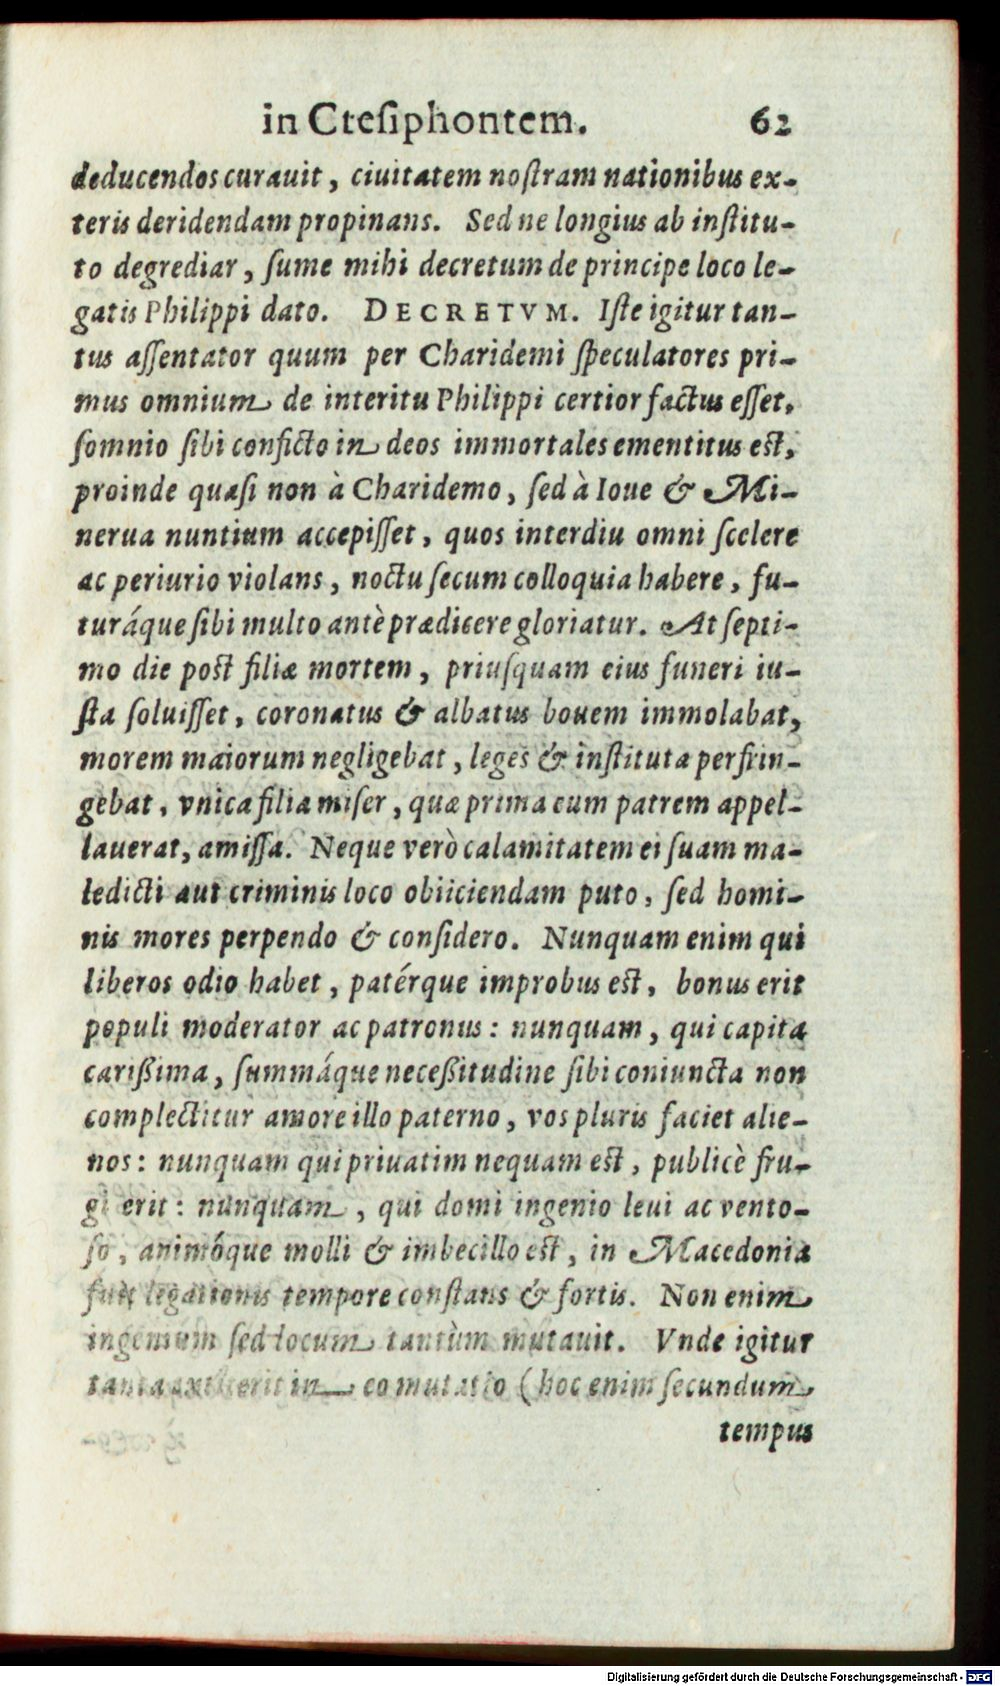 in Cteſiphontem. 62
deducendos curauit, ciuitatem noſtram nationibus ex-
teris deridendam propinans. Sed ne longius ab inſtitu-
to degrediar, ſume mihi decretum de principe loco le-
gatis Philippi dato. DECRETVM. Iſte igitur tan-
tus aſſentator quum per Charidemi ſpeculatores pri-
mus omnium de interitu Philippi certior factus eſſet,
ſomnio ſibi conficto in deos immortales ementitus eſt,
proinde quaſi non à Charidemo, ſed à Ioue & Mi-
nerua nuntium accepiſſet, quos interdiu omni ſcelere
ac periurio violans, noctu ſecum colloquia habere, fu-
turáque ſibi multo antè prædicere gloriatur. At ſepti-
mo die poſt filiæ mortem, priuſquam eius funeri iu-
ſta ſoluiſſet, coronatus & albatus bouem immolabat,
morem maiorum negligebat, leges & inſtituta perfrin-
gebat, vnica filia miſer, quæ prima eum patrem appel-
lauerat, amiſſa. Neque verò calamitatem ei ſuam ma-
ledicti aut criminis loco obiiciendam puto, ſed homi-
nis mores perpendo & conſidero. Nunquam enim qui
liberos odio habet, patérque improbus eſt, bonus erit
populi moderator ac patronus: nunquam, qui capita
carißima, ſummáque neceßitudine ſibi coniuncta non
complectitur amore illo paterno, vos pluris faciet alie-
nos: nunquam qui priuatim nequam eſt, publicè fru-
gi erit: nunquam, qui domi ingenio leui ac vento-
ſo, animóque molli & imbecillo eſt, in Macedonia
fuit legationis tempore conſtans & fortis. Non enim
ingenium ſed locum tantùm mutauit. Vnde igitur
tanta in eo mutatio (hoc enim ſecundum
tempus
Digitalisierung gefördert durch die Deutsche Forschungsgemeinschaft - DFG